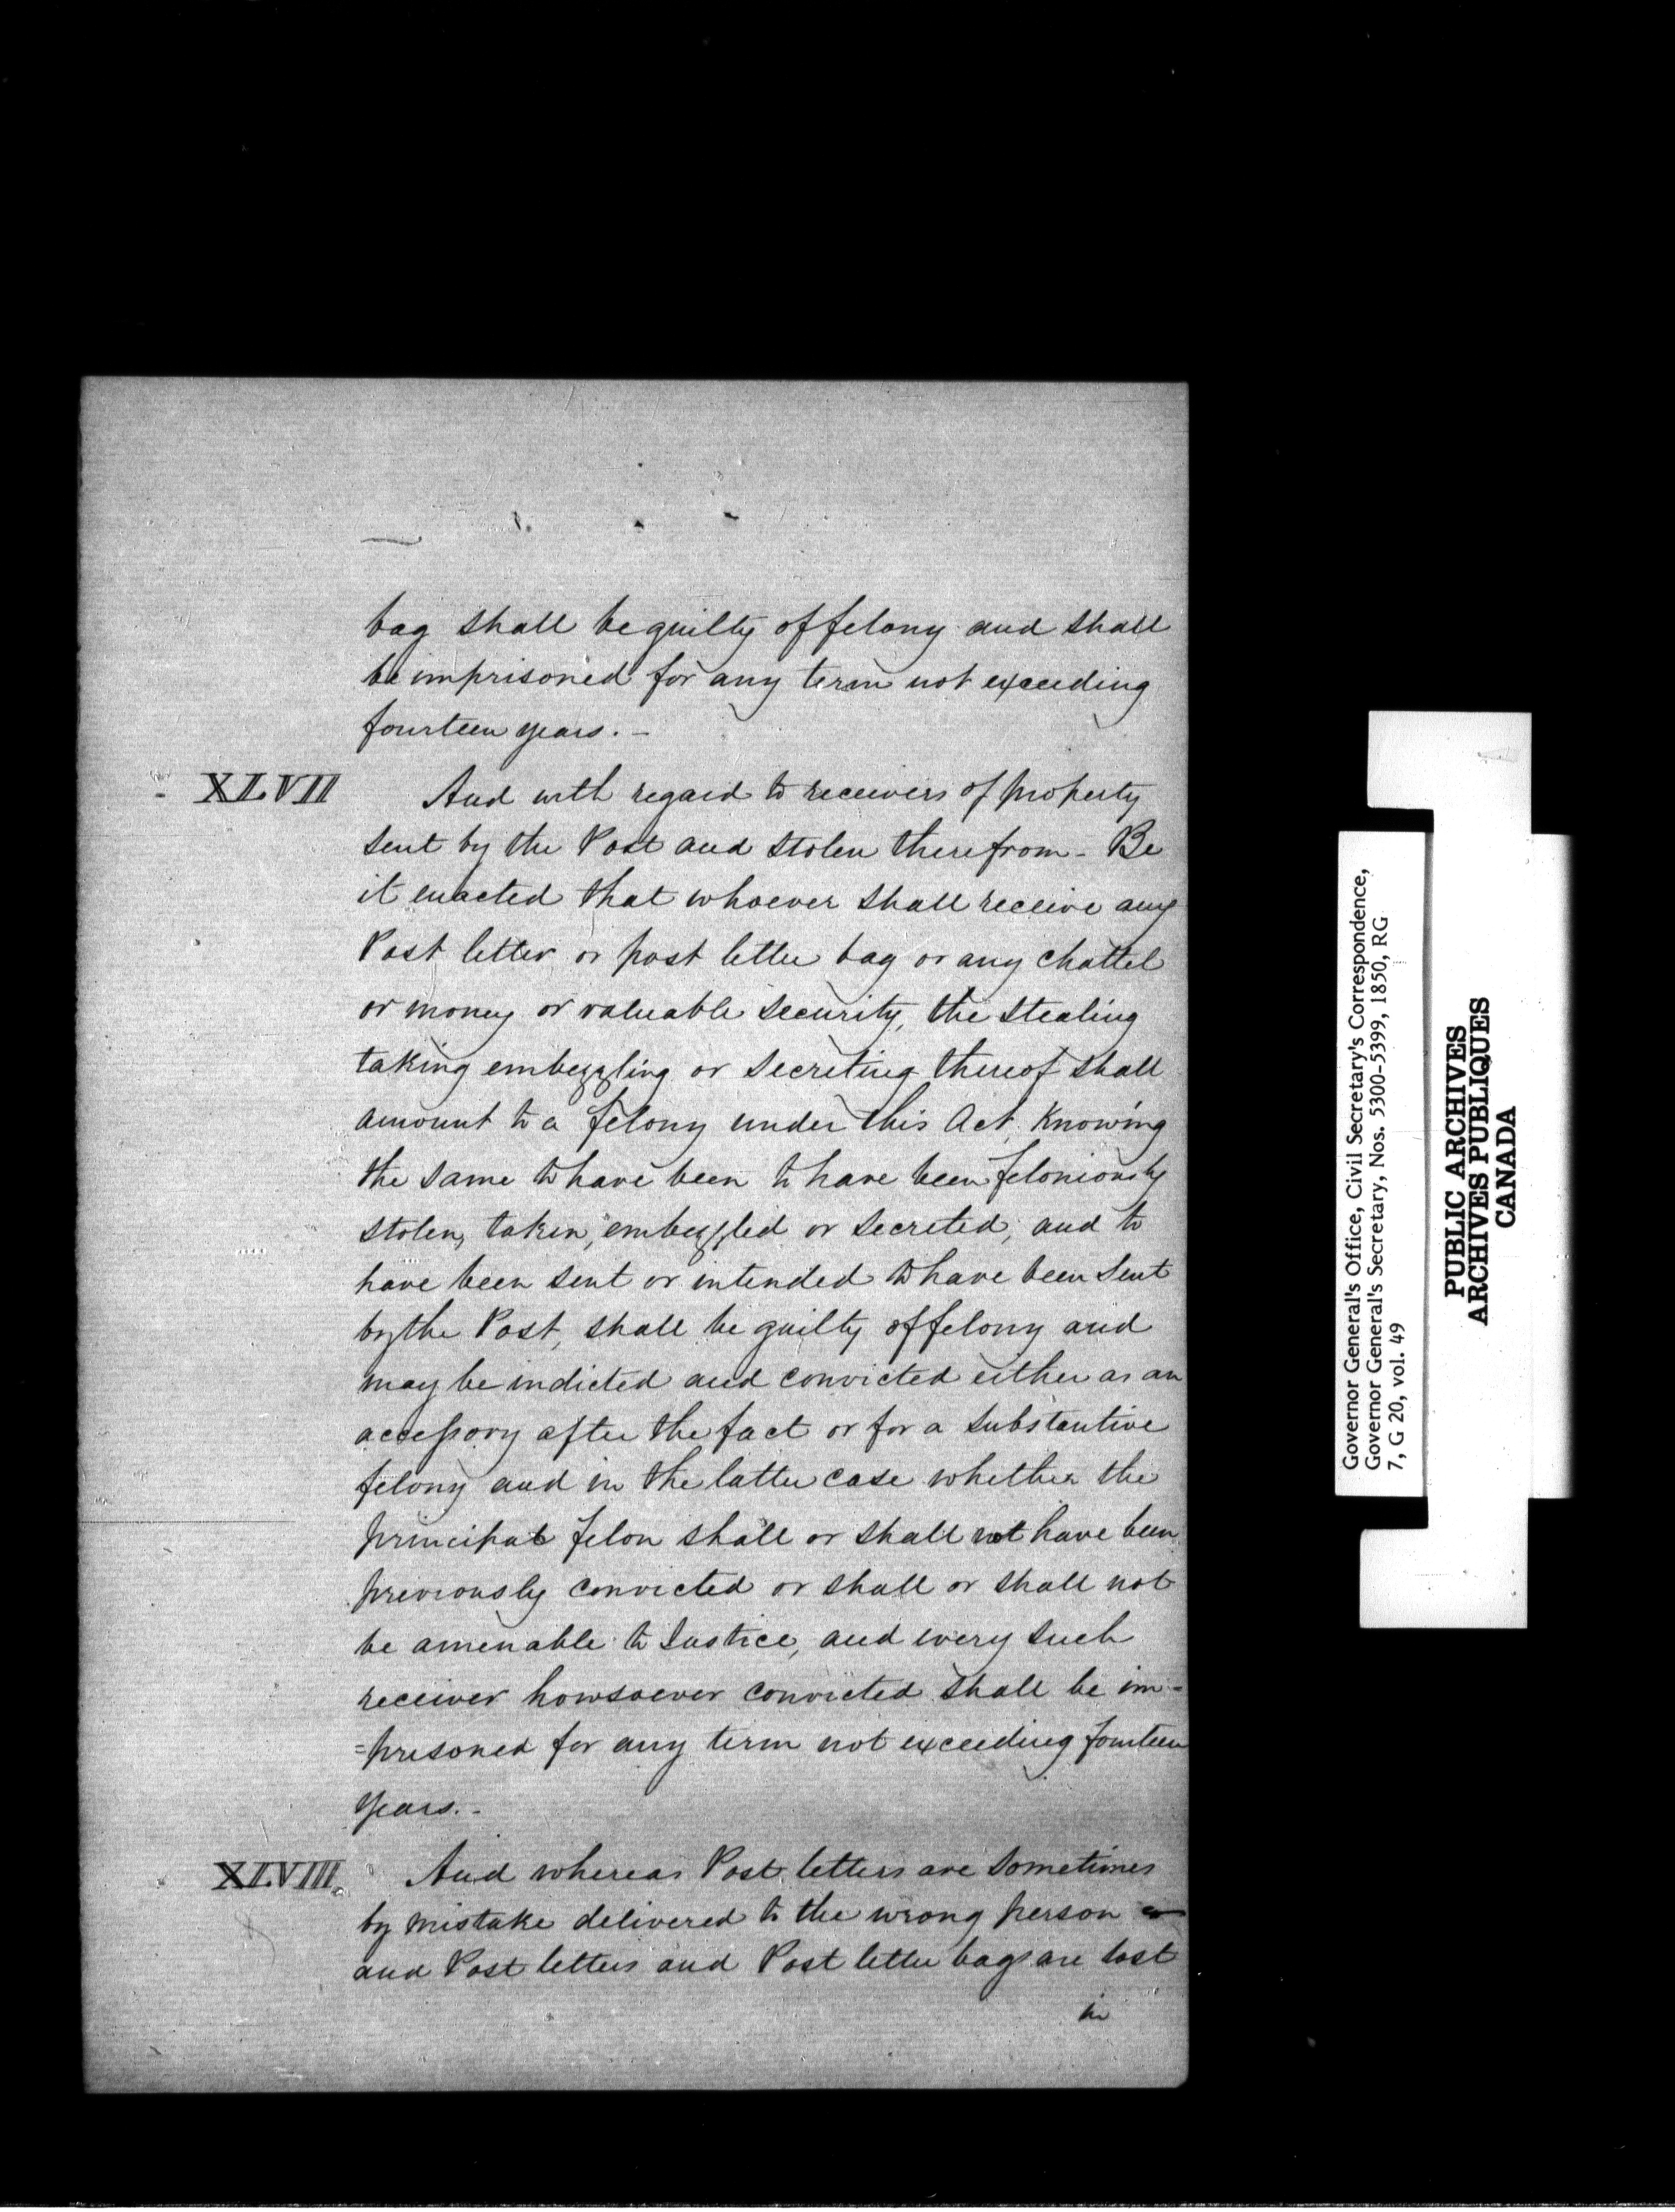 bag shall be guilty of felony and shall
be imprisoned for any term not exceeding
fourteen years. -
XLVII
And with regard to receivers of property
sent by the Post and stolen therefrom - Be
it enacted that whoever shall receive any
Post letter or post letter bag or any chattel
or money or valuable security, the stealing
taking embezzling or secreting thereof shall
amount to a felony under this Act, Knowing
the same to have been to have been feloniously
stolen, taken, embezzled or secreted, and to
have been sent or intended to have been sent
by the Post, shall be guilty of felony and
may be indicted and convicted either as an
accessory after the fact or for a substantive
felony and in the latter case whether the
principal felon shall or shall not have been
previously convicted or shall or shall not
be amenable to Justice, and every such
receiver howsoever convicted shall be im=
=prisoned for any term not exceeding fourteen
years. -
XLVIII.
And whereas Post letters are sometimes
by mistake delivered to the wrong person
and Post letters and Post letter bags are lost
in
Governor General's Office, Civil Secretary's Correspondence,
Governor General's Secretary, Nos. 5300-5399, 1850, RG
7, G 20, vol. 49
PUBLIC ARCHIVES
ARCHIVES PUBLIQUES
CANADA